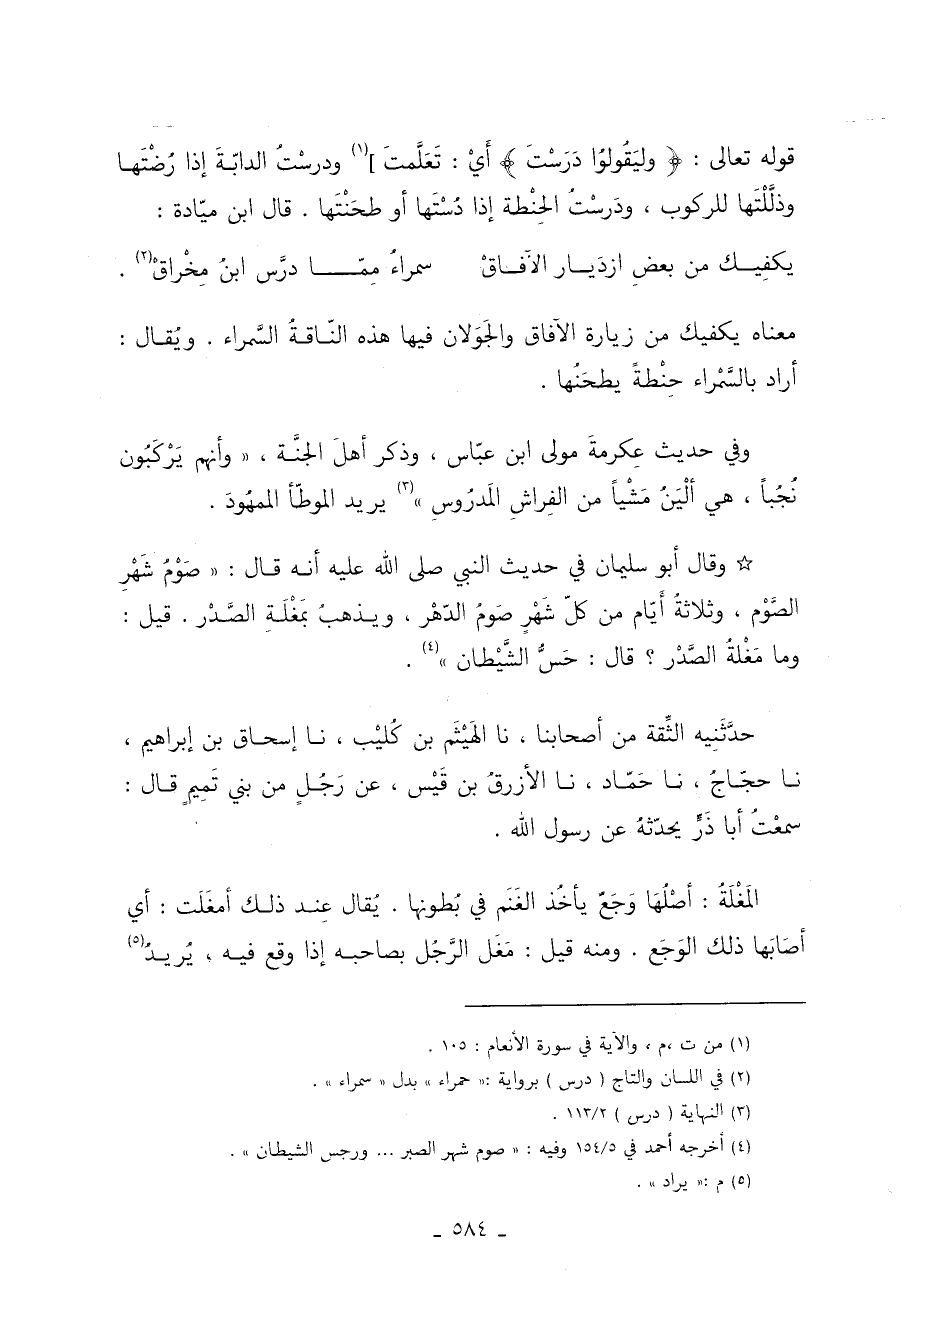 قوله تعالى : ﴿ وليَقُولوُا دَرَسْتَ ﴾ أَيْ : تَعَلَّمتَ ](١) ودرسْتُ الدابّةَ إذا رُضْتَها
وذلَّلْتَها للركوب ، ودَرسْتُ الحِنْطة إذا دُسْتَها أو طحَنْتَها . قال ابن ميّادة :
يكفيك من بعضِ ازدَيار الآفاقْ سمراءُ ممّا درَّس ابنُ مخْراقْ(٢) .
معناه يكفيك من زيارة الآفاق والجَوَلان فيها هذه النّاقةُ السَّمراء . ويُقال :
أراد بالسَّمْراء حِنْطةً يطحَنُها .
وفي حديث عِكرمةَ مولى ابن عبّاس ، وذكر أهلَ الجنَّة ، « وأنهم يَرْكَبُون
نُجُباً ، هي ألْيَنُ مَشْياً من الفِراشِ المَدرُوسِ »(٣) يريد الموطّأ الممهُودَ .
☆ وقال أبو سليمان في حديث النبي صلى الله عليه أنه قال : « صَوْمُ شَهْرِ
الصَّوْم ، وثلاثةُ أيّام من كلّ شَهْرٍ صَومُ الدّهْر ، ويذهبُ بمَغْلَةِ الصَّدْر . قيل :
وما مَغْلةُ الصَّدْر ؟ قال : حَسُّ الشَّيْطان »(٤) .
حدَّثَنِيه الثِّقة من أصحابنا ، نا الهَيْثَم بن كُلَيْب ، نا إسحاق بن إبراهيم ،
نا حجّاجُ ، نا حَمّاد ، نا الأزرقُ بن قَيْس ، عن رَجُلٍ من بني تَمِيمٍ قال :
سمعْتُ أبا ذَرٍّ يحدّثهُ عن رسول الله .
المَغْلَةُ : أصْلُهَا وَجَعٌ يأخُذ الغَنَم في بُطونِها . يُقال عِند ذلك أمغَلَت : أي
أصَابَها ذلك الوَجَع . ومنه قيل : مَغَل الرَّجُل بصاحبِه إذا وقع فيه ، يُريدُ(٥)
(١) من ت ،م ، والآية في سورة الأنعام : ١٠٥ .
(٢) في اللسان والتاج ( درس ) برواية :« حمراء » بدل « سمراء » .
(٣) النهاية ( درس ) ١١٣/٢ .
(٤) أخرجه أحمد في ١٥٤/٥ وفيه : « صوم شهر الصبر ... ورجس الشيطان » .
(٥) م :« يراد » .
- ٥٨٤ -